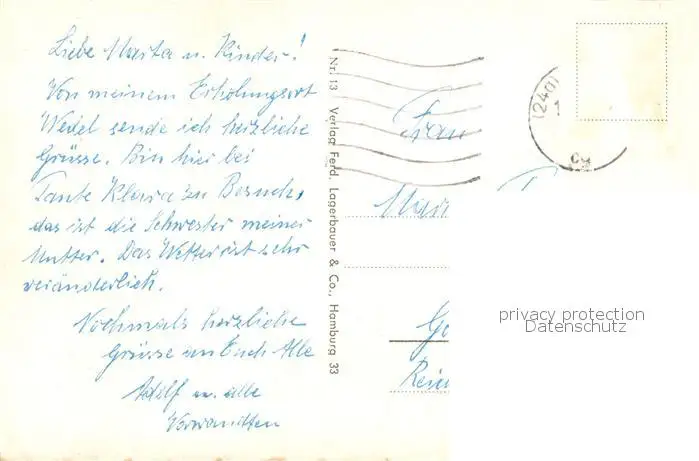 Liebe Marta u. Kinder!
Von meinem Erholungsort
Wedel sende ich herzliche
Grüsse. Bin hier bei
Tante Klara zu Besuch,
das ist die Schwester meiner
Mutter. Das Wetter ist sehr
veränderlich.
Nochmals herzliche
Grüsse an Euch Alle
Adolf u. alle
Verwandten
Nr. 13 Verlag Ferd. Lagerbauer & Co., Hamburg 33
(24a)
1
Frau
privacy protection
Datenschutz